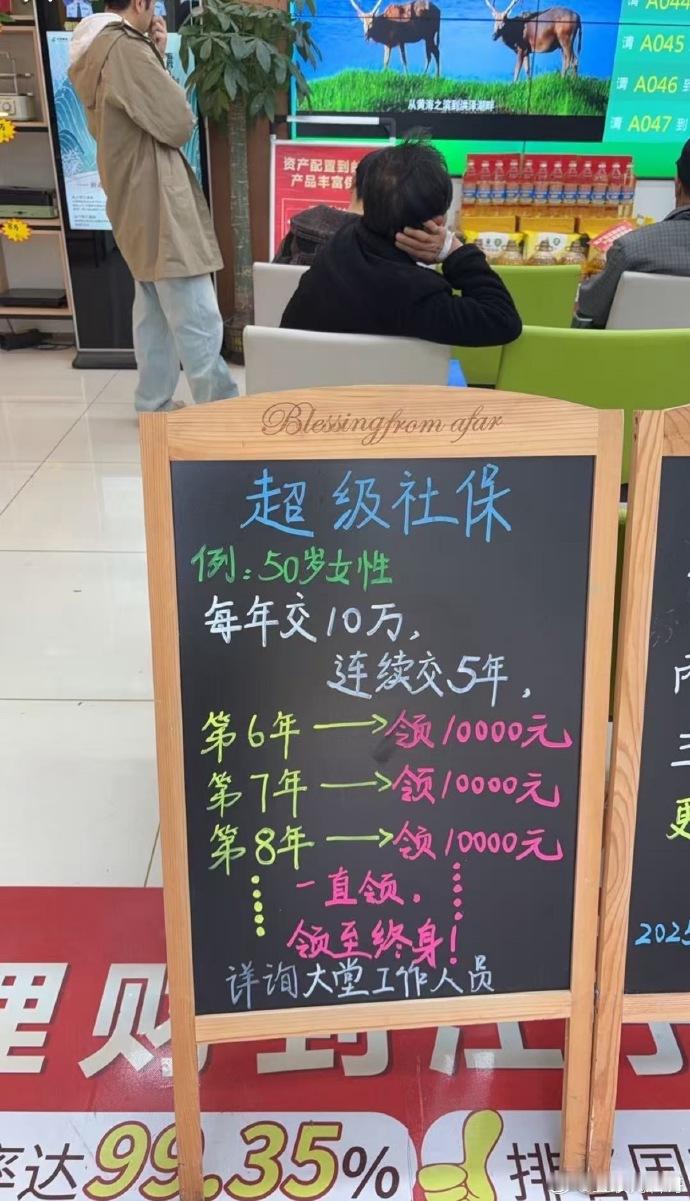 A044
请 A045
请 A046 到
请 A047 到
从黄海之滨到洪泽湖畔
资产配置到邮
产品丰富保
Blessing from afar
超级社保
例:50岁女性
每年交10万,
连续交5年,
第6年→领10000元
第7年→领10000元
第8年→领10000元
一直领.
领至终身!
详询大堂工作人员
2025
理财到江
率达99.35%